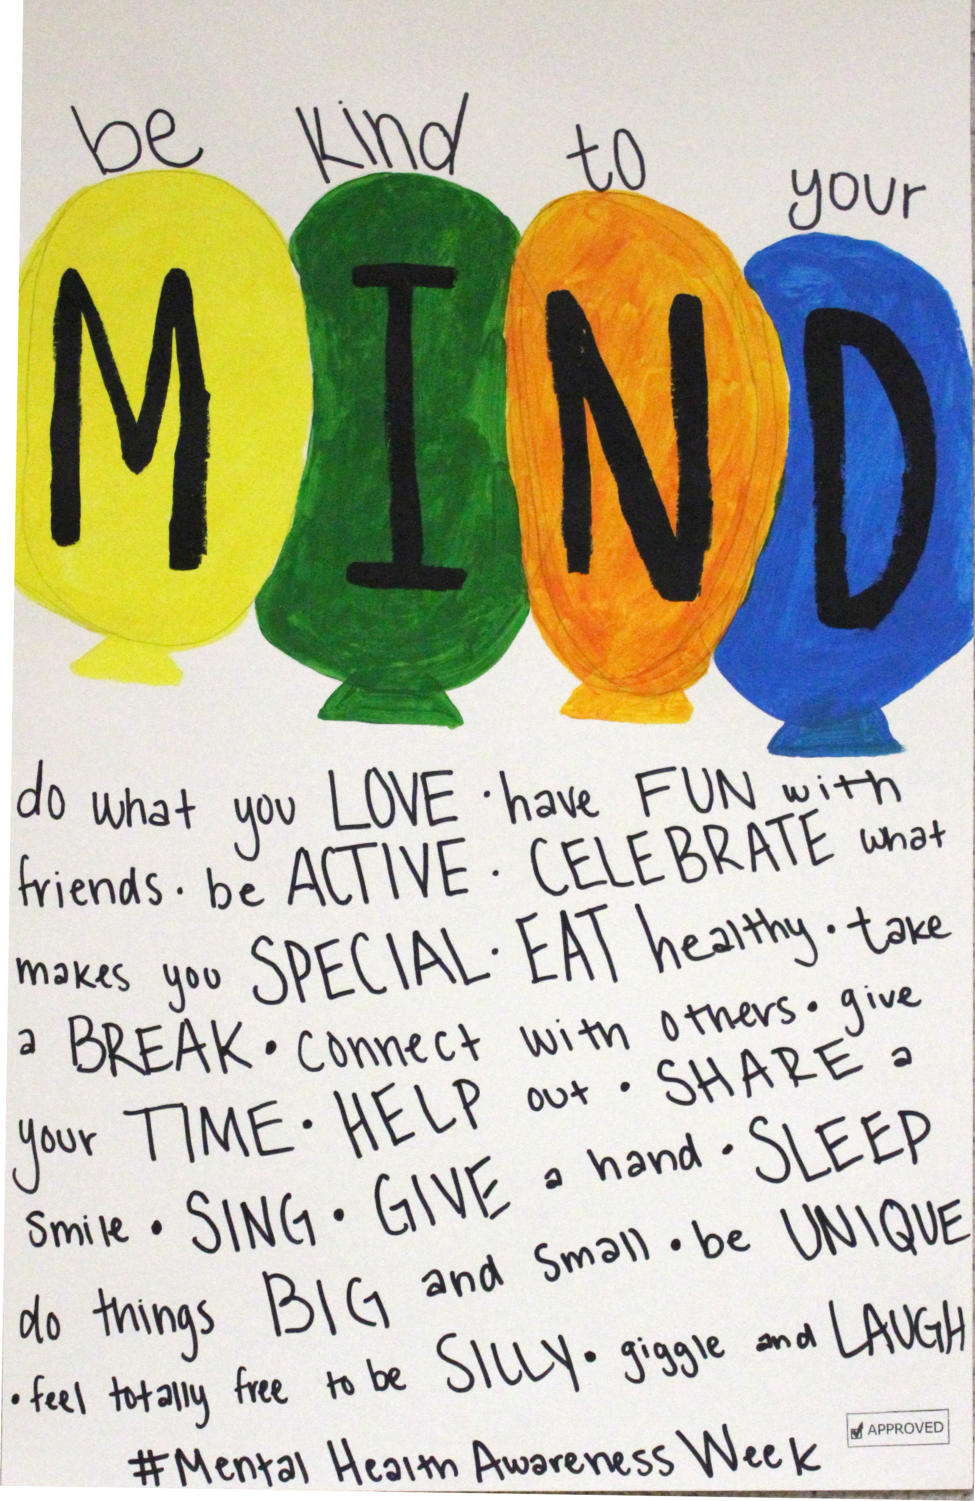 be kind to your
MIND
do what you LOVE · have FUN with
friends · be ACTIVE · CELEBRATE what
makes you SPECIAL · EAT healthy · take
a BREAK · connect with others · give
your TIME · HELP out · SHARE a
smile · SING · GIVE a hand · SLEEP
do things BIG and small · be UNIQUE
· feel totally free to be SILLY · giggle and LAUGH
APPROVED
#Mental Health Awareness Week